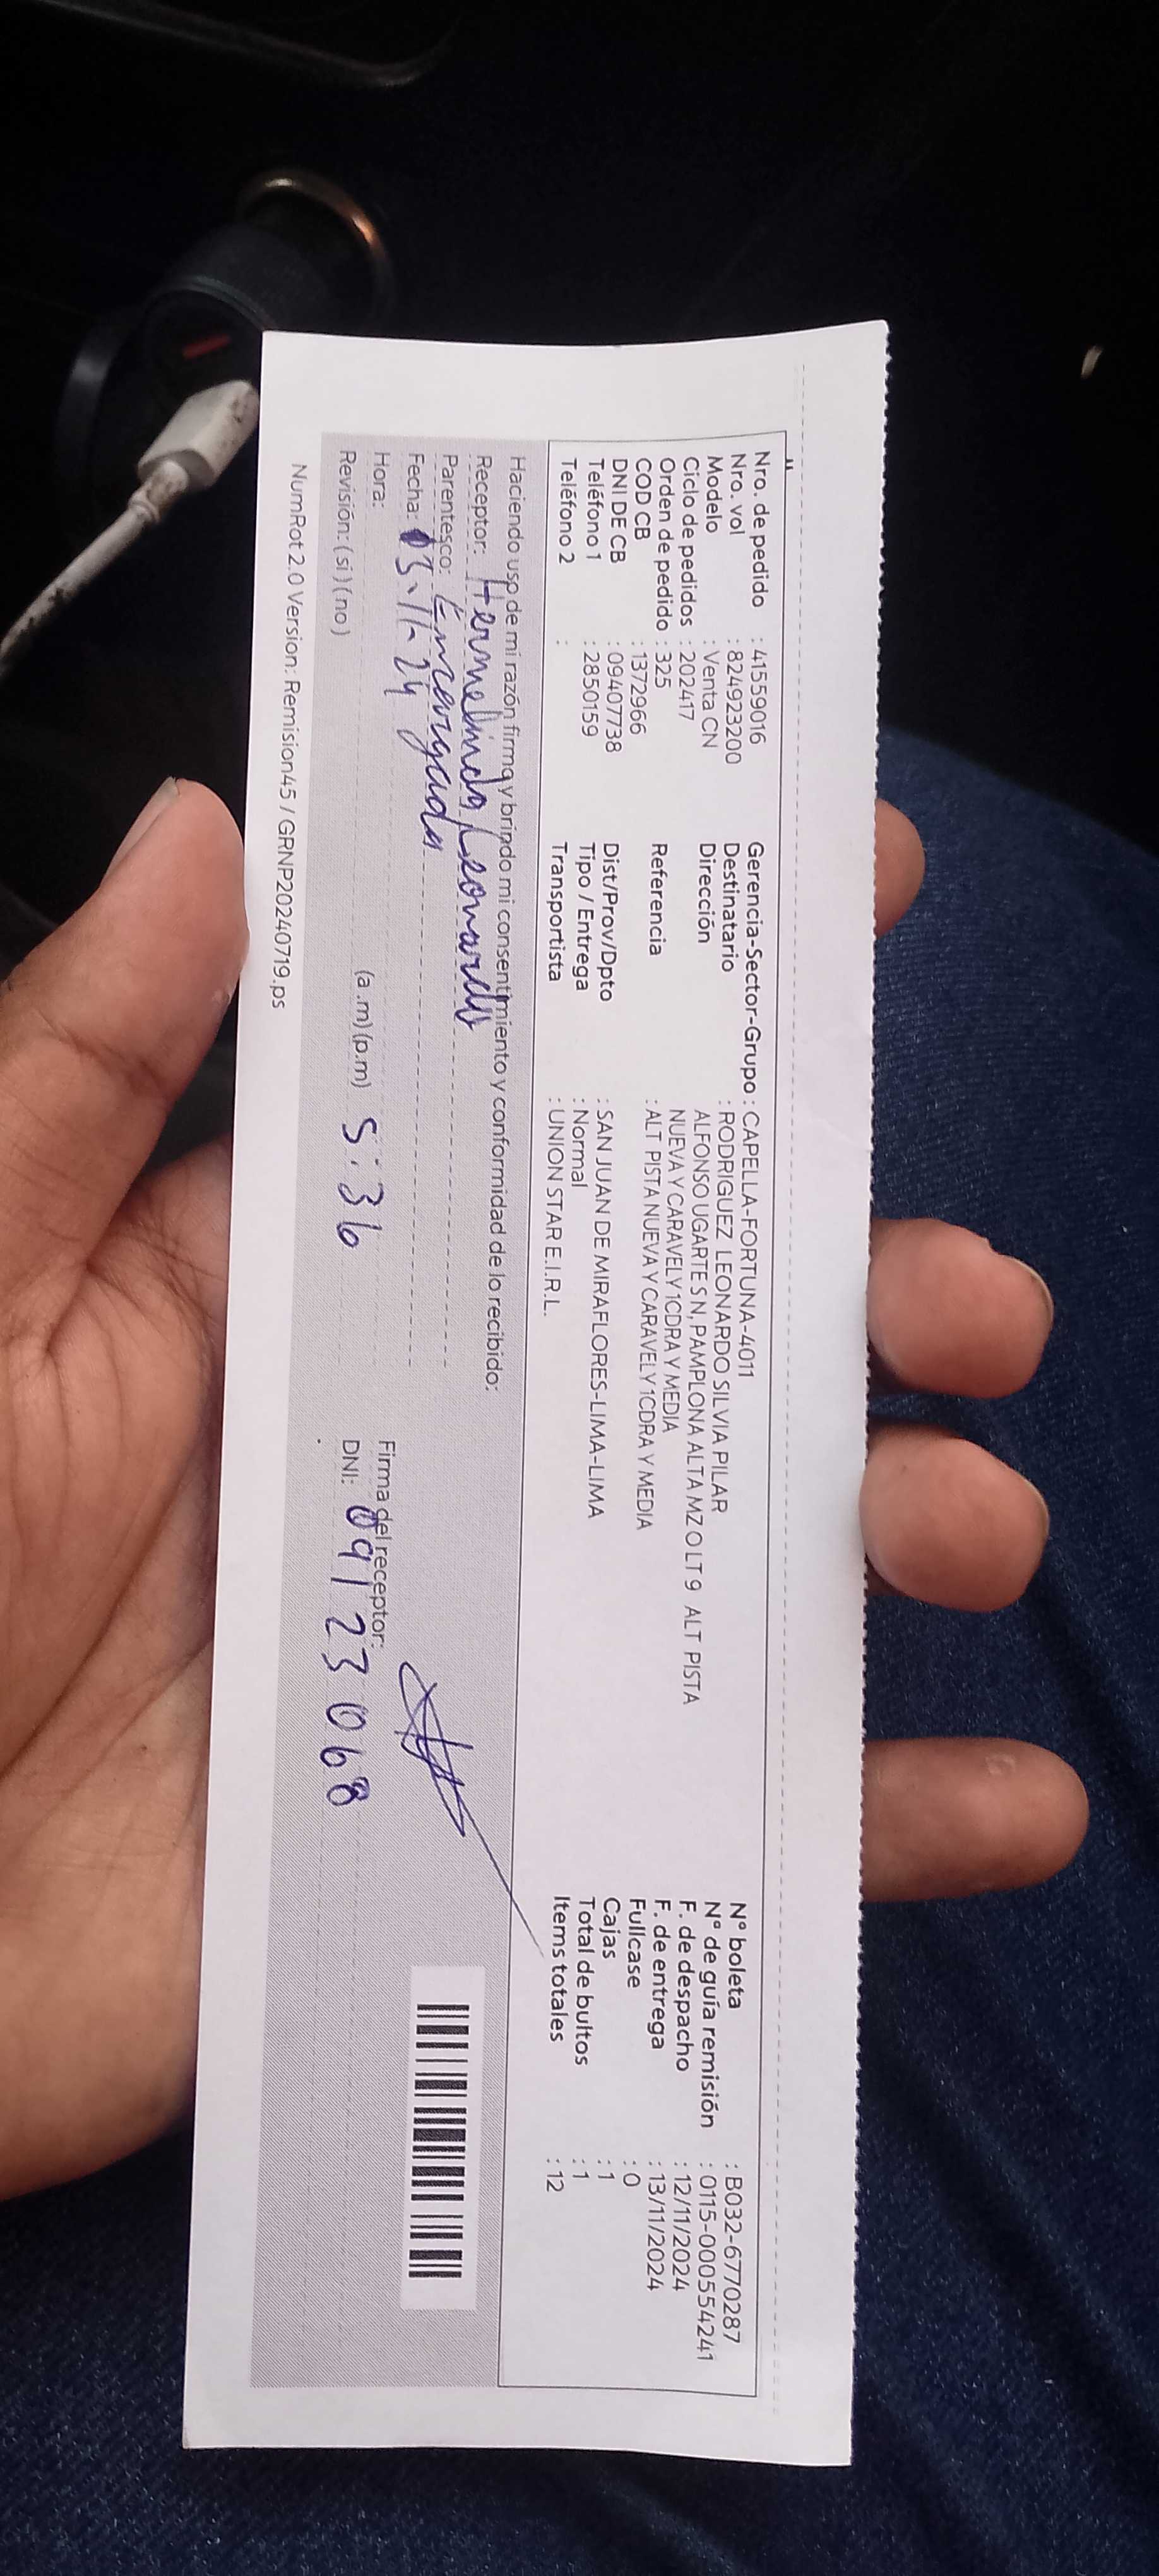 Nro. de pedido : 41559016
Nro. vol : 824923200
Modelo : Venta CN
Ciclo de pedidos : 202417
Orden de pedido : 325
COD CB : 1372966
DNI DE CB : 09407738
Teléfono 1 : 2850159
Teléfono 2 :
Gerencia-Sector-Grupo : CAPELLA-FORTUNA-4011
Destinatario : RODRIGUEZ LEONARDO SILVIA PILAR
Dirección ALFONSO UGARTE S N, PAMPLONA ALTA MZ O LT 9 ALT PISTA
NUEVA Y CARAVELY 1CDRA Y MEDIA
Referencia : ALT PISTA NUEVA Y CARAVELY 1CDRA Y MEDIA
Dist/Prov/Dpto : SAN JUAN DE MIRAFLORES-LIMA-LIMA
Tipo / Entrega : Normal
Transportista : UNION STAR E.I.R.L.
N° boleta : B032-6770287
N° de guía remisión : 0115-000554241
F. de despacho : 12/11/2024
F. de entrega : 13/11/2024
Fullcase : 0
Cajas : 1
Total de bultos : 1
Items totales : 12
Haciendo uso de mi razón firmo y brindo mi consentimiento y conformidad de lo recibido:
Receptor: Hermelinda Leonardo
Parentesco: Encargada
Fecha: 13-11-24
Hora: (a .m) (p.m) 5:36
Revisión: (si) (no)
Firma del receptor:
DNI: 09123068
NumRot 2.0 Version: Remision45 / GRNP20240719.ps